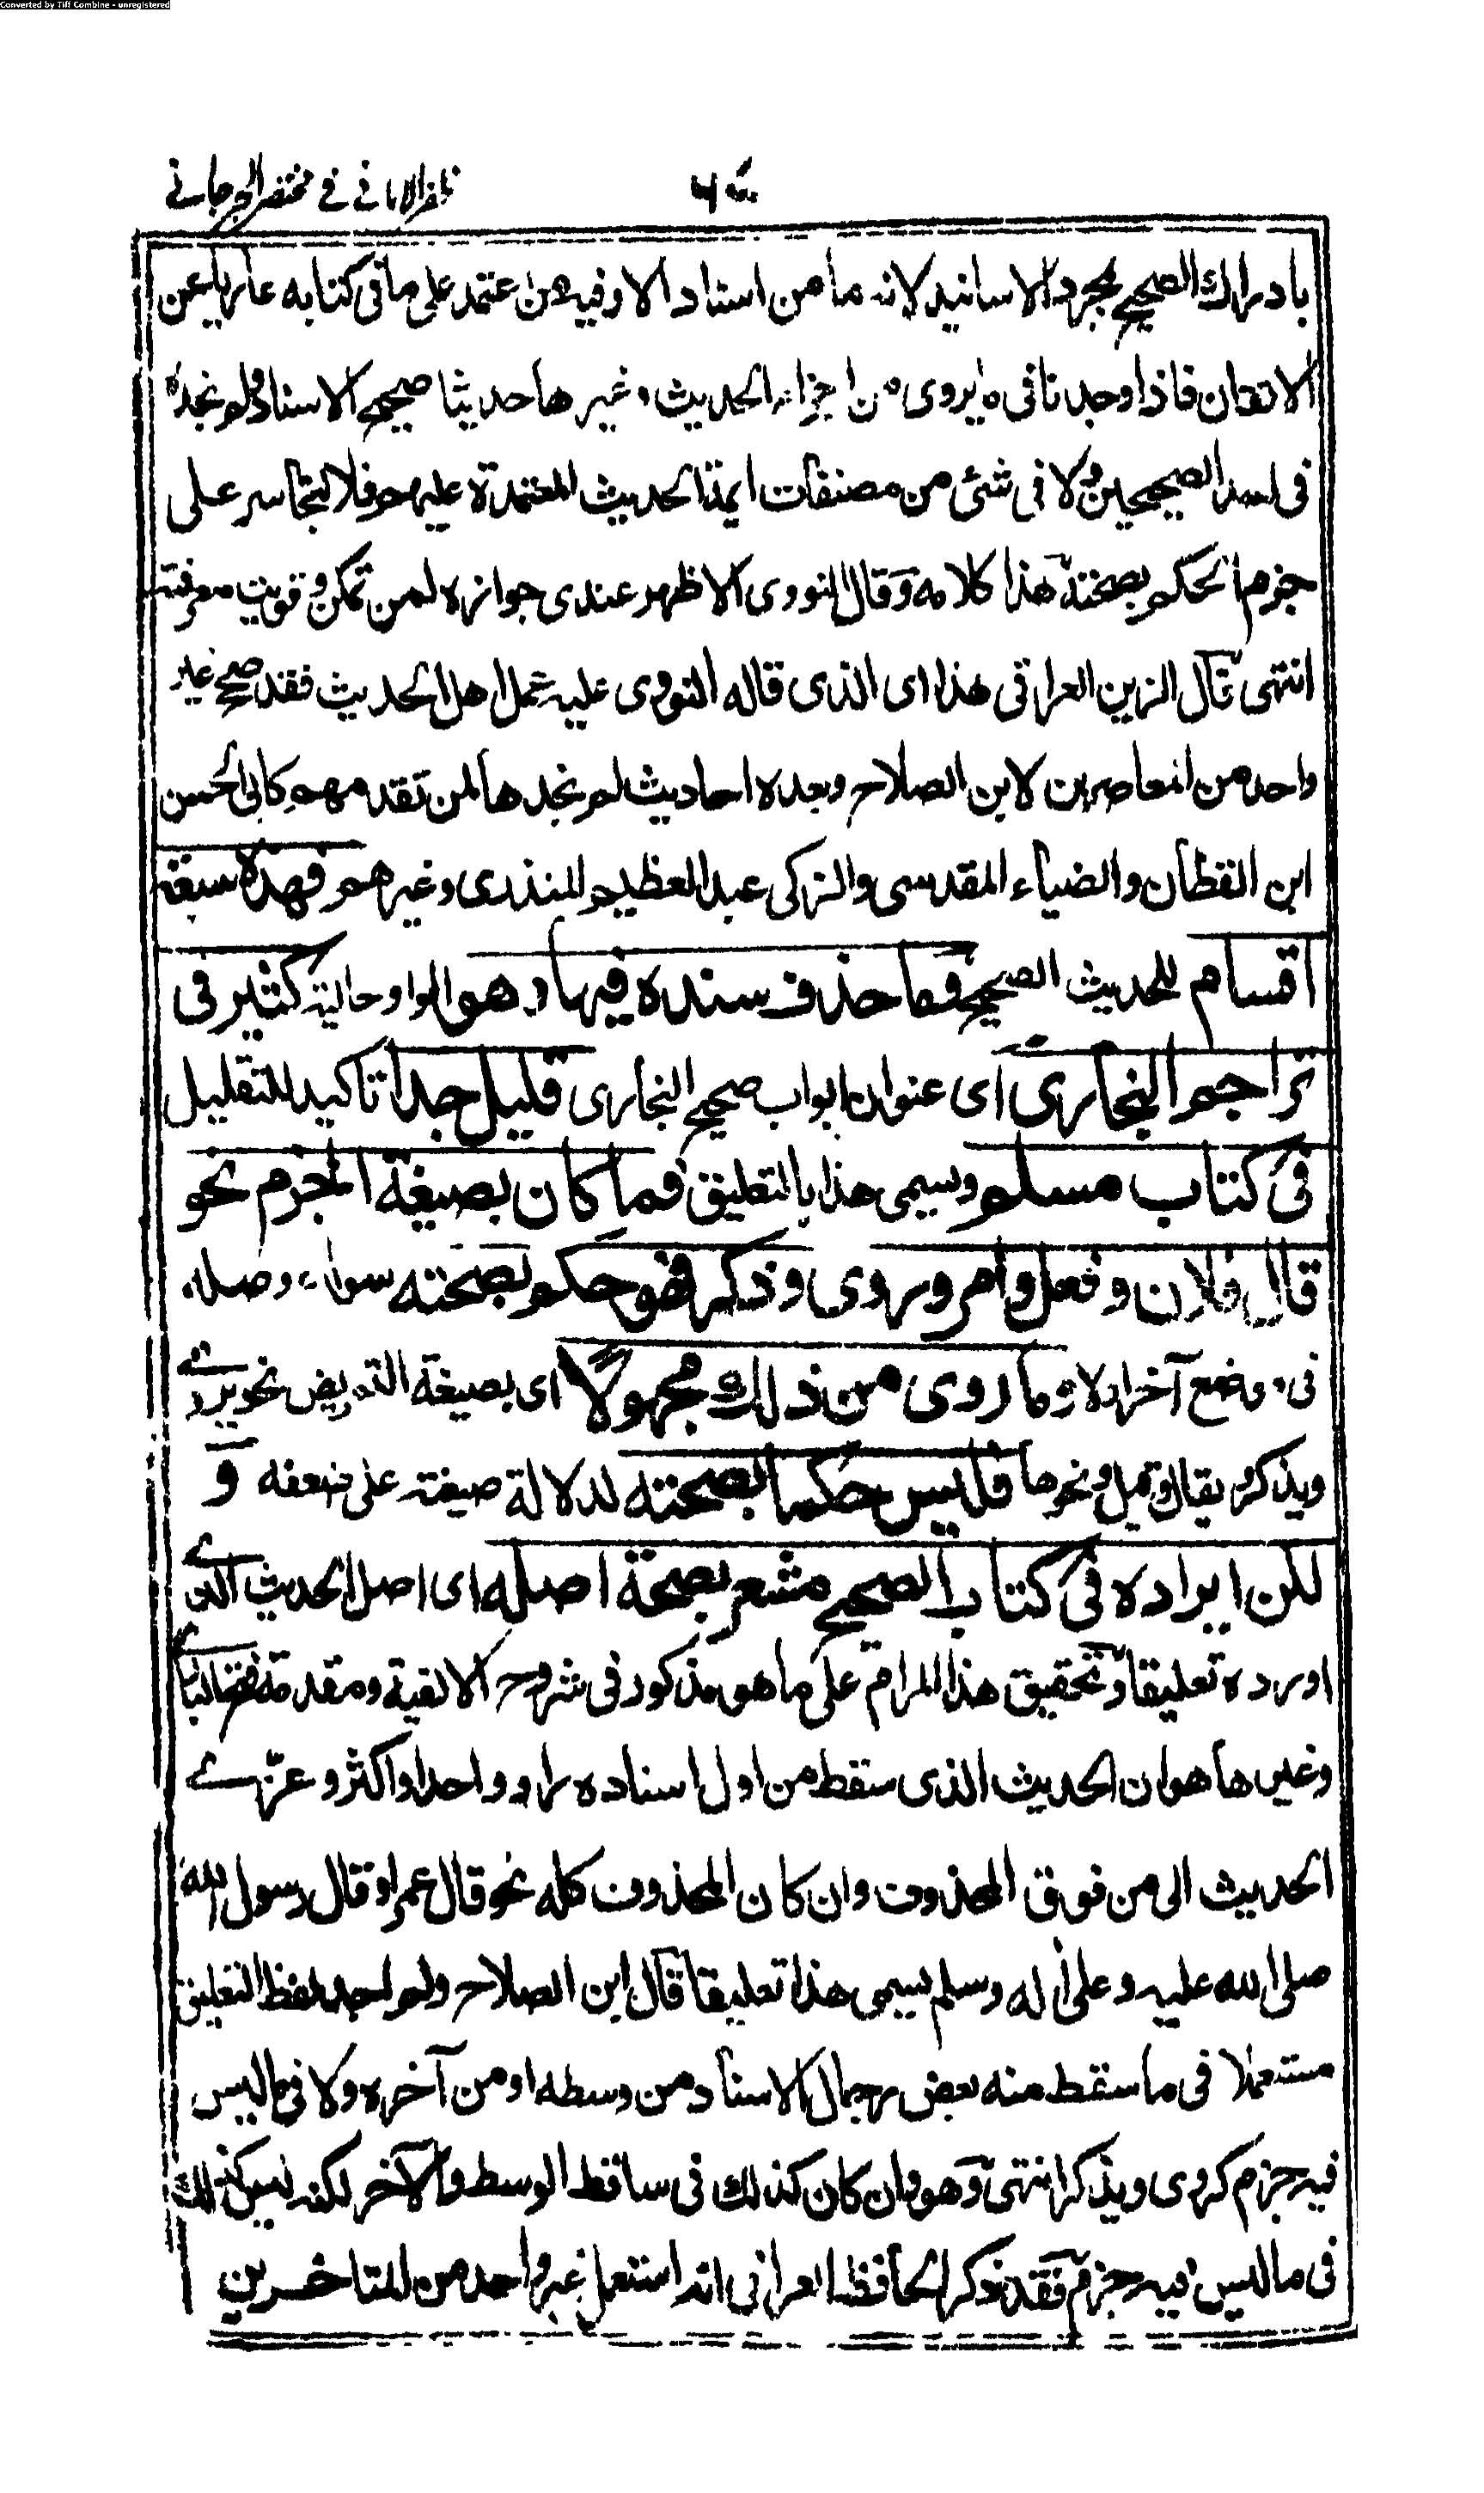 Converted by Tiff Combine - unregistered
ظفر الامانے فے مختصر الجرجانے
بادراك الصحيح بمجرد الاسانيد لانه ما من اسناد الا وفيه من اعتمد على ما فى كتابه عاريا عن
الاتقان فاذا وجدنا فى ما يروى من اجزاء الحديث وغيرها حديثا صحيح الاسناد ولم نجده
فى احد الصحيحين ولا فى شئ من مصنفات ايمة الحديث المعتمدة عليهم فلا نتجاسر على
جزم الحكم بصحته هذا كلامه وقال النووى الاظهر عندى جوازه لمن تمكن وقويت معرفته
انتهى قال الزين العراقى هذا اى الذى قاله النووى عليه عمل اهل الحديث فقد صحح غير
واحد من المعاصرين لابن الصلاح وبعده احاديث لم نجدها لمن تقدمهم كابى الحسن
ابن القطان والضياء المقدسى والزكى عبد العظيم المنذرى وغيرهم فهذه سبعة
اقسام للحديث الصحيح فما حذف سنده فيها وهو الواو حالية كثير فى
تراجم البخارى اى عنوان ابواب صحيح البخارى قليل جدا تاكيد للتقليل
فى كتاب مسلم ويسمى هذا بالتعليق فما كان بصيغة الجزم نحو
قال فلان وفعل وامر وروى وذكر فهو حكم بصحته سواء وصله
فى موضع آخر او لا وما روى من ذلك مجهولا اى بصيغة التمريض نحو يروے
ويذكر ويقال وقيل ونحوها فليس حكما بصحته لدلالة صيغته على ضعفه و
لكن ايراده فى كتاب الصحيح مشعر بصحة اصله اى اصل الحديث الذے
اورده تعليقا وتحقيق هذا المرام على ما هو مذكور فى شروح الالفية ومقدمة فتح البارے
وغيرها هو ان الحديث الذى سقط من اول اسناده راو واحد او اكثر وعزے
الحديث الى من فوق المحذوف وان كان المحذوف كله نحو قال عمر او قال رسول الله
صلى الله عليه وعلى اله وسلم يسمى هذا تعليقا قال ابن الصلاح ولم اجد لفظ التعليق
مستعملا فى ما سقط منه بعض رجال الاسناد من وسطه او من آخره ولا فى ما ليس
فيه جزم كروى ويذكر انتهى وهو وان كان كذلك فى ساقط الوسط والآخر لكنه ليس كذلك
فى ما ليس فيه جزم فقد ذكر الحافظ العراقى انه استعمل غير واحد من المتاخرين